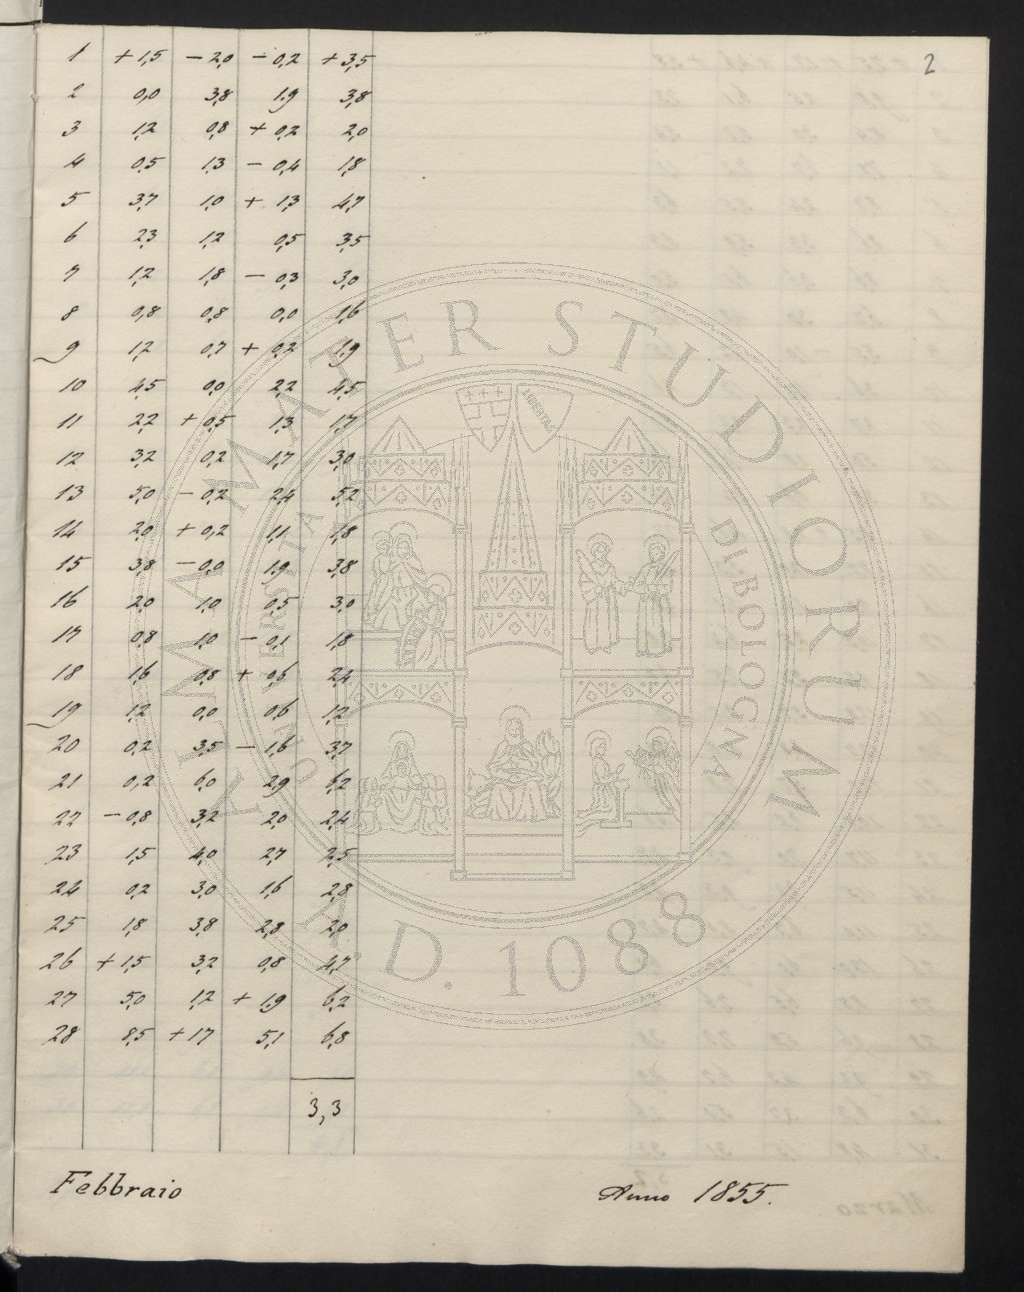 2
1 + 1,5 − 2,0 − 0,2 + 3,5
2 0,0 3,8 1,9 3,8
3 1,2 0,8 + 0,2 2,0
4 0,5 1,3 − 0,4 1,8
5 3,7 1,0 + 1,3 4,7
6 2,3 1,2 0,5 3,5
7 1,2 1,8 − 0,3 3,0
8 0,8 0,8 0,0 1,6
9 1,2 0,7 + 0,2 1,9
10 4,5 0,0 2,2 4,5
11 2,2 + 0,5 1,3 1,7
12 3,2 0,2 1,7 3,0
13 5,0 − 0,2 2,4 5,2
14 2,0 + 0,2 1,1 1,8
15 3,8 − 0,0 1,9 3,8
16 2,0 1,0 0,5 3,0
17 0,8 1,0 − 0,1 1,8
18 1,6 0,8 + 0,6 2,4
19 1,2 0,0 0,6 1,2
20 0,2 3,5 − 1,6 3,7
21 0,2 6,0 2,9 6,2
22 − 0,8 3,2 2,0 2,4
23 1,5 4,0 2,7 2,5
24 0,2 3,0 1,6 2,8
25 1,8 3,8 2,8 2,0
26 + 1,5 3,2 0,8 4,7
27 5,0 1,2 + 1,9 6,2
28 8,5 + 1,7 5,1 6,8
3,3
Febbraio Anno 1855.
ALMA MATER STUDIORUM
UNIVERSITÀ DI BOLOGNA
LIBERTAS
A.D. 1088